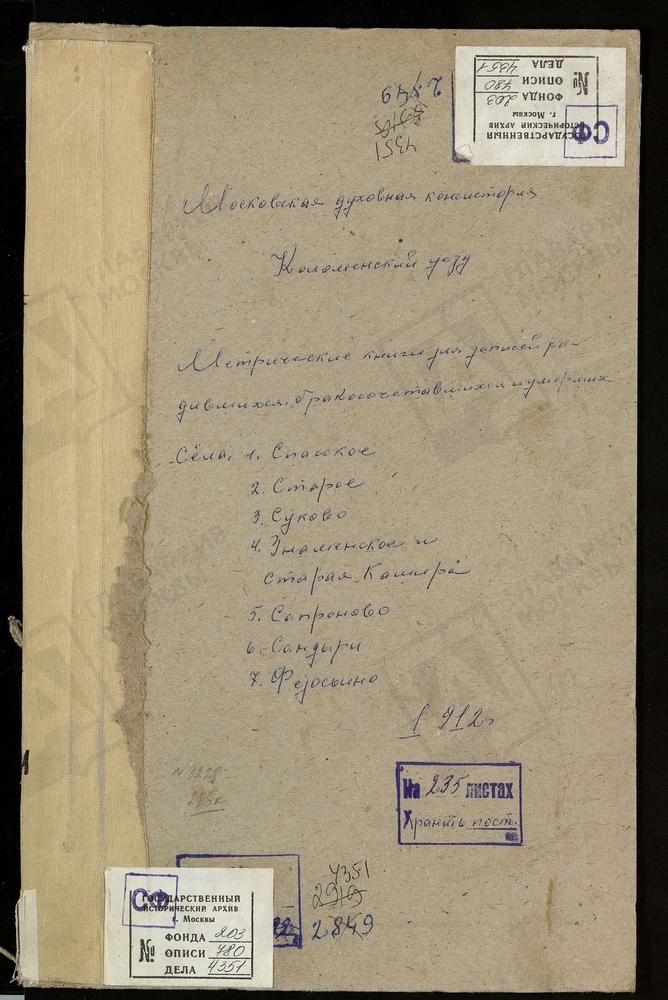 ГОСУДАРСТВЕННЫЙ
ИСТОРИЧЕСКИЙ АРХИВ
г. Москвы
ФОНДА 203
№ ОПИСИ 780
ДЕЛА 4351
СФ
2849
4351
Московская духовная консистория
Коломенский уезд
Метрические книги для записей ро-
дившихся, бракосочетавшихся и умерших
Сёла: 1. Спасское
2. Старое
3. Суково
4. Знаменское и
Старая Кашира
5. Сапроново
6. Сандыри
7. Федосьино
1912г
На 235 листах
Хранить пост.
4351
2849
СФ
ГОСУДАРСТВЕННЫЙ
ИСТОРИЧЕСКИЙ АРХИВ
г. Москвы
ФОНДА 203
№ ОПИСИ 780
ДЕЛА 4351